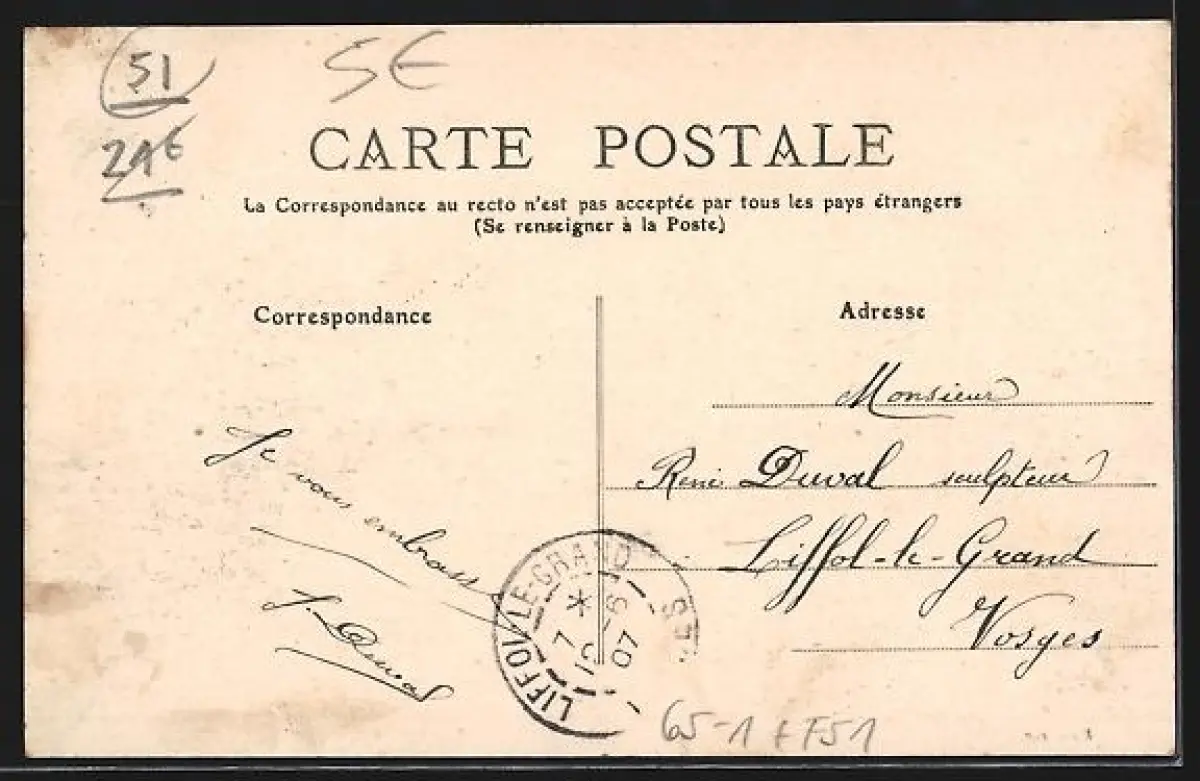 51
5€
24€
CARTE POSTALE
La Correspondance au recto n'est pas acceptée par tous les pays étrangers
(Se renseigner à la Poste)
Correspondance
Je vous embrasse
J. Duval
Adresse
Monsieur
René Duval sculpteur
à Liffol-le-Grand
Vosges
LIFFOL-LE-GRAND
07
65-1 + F51